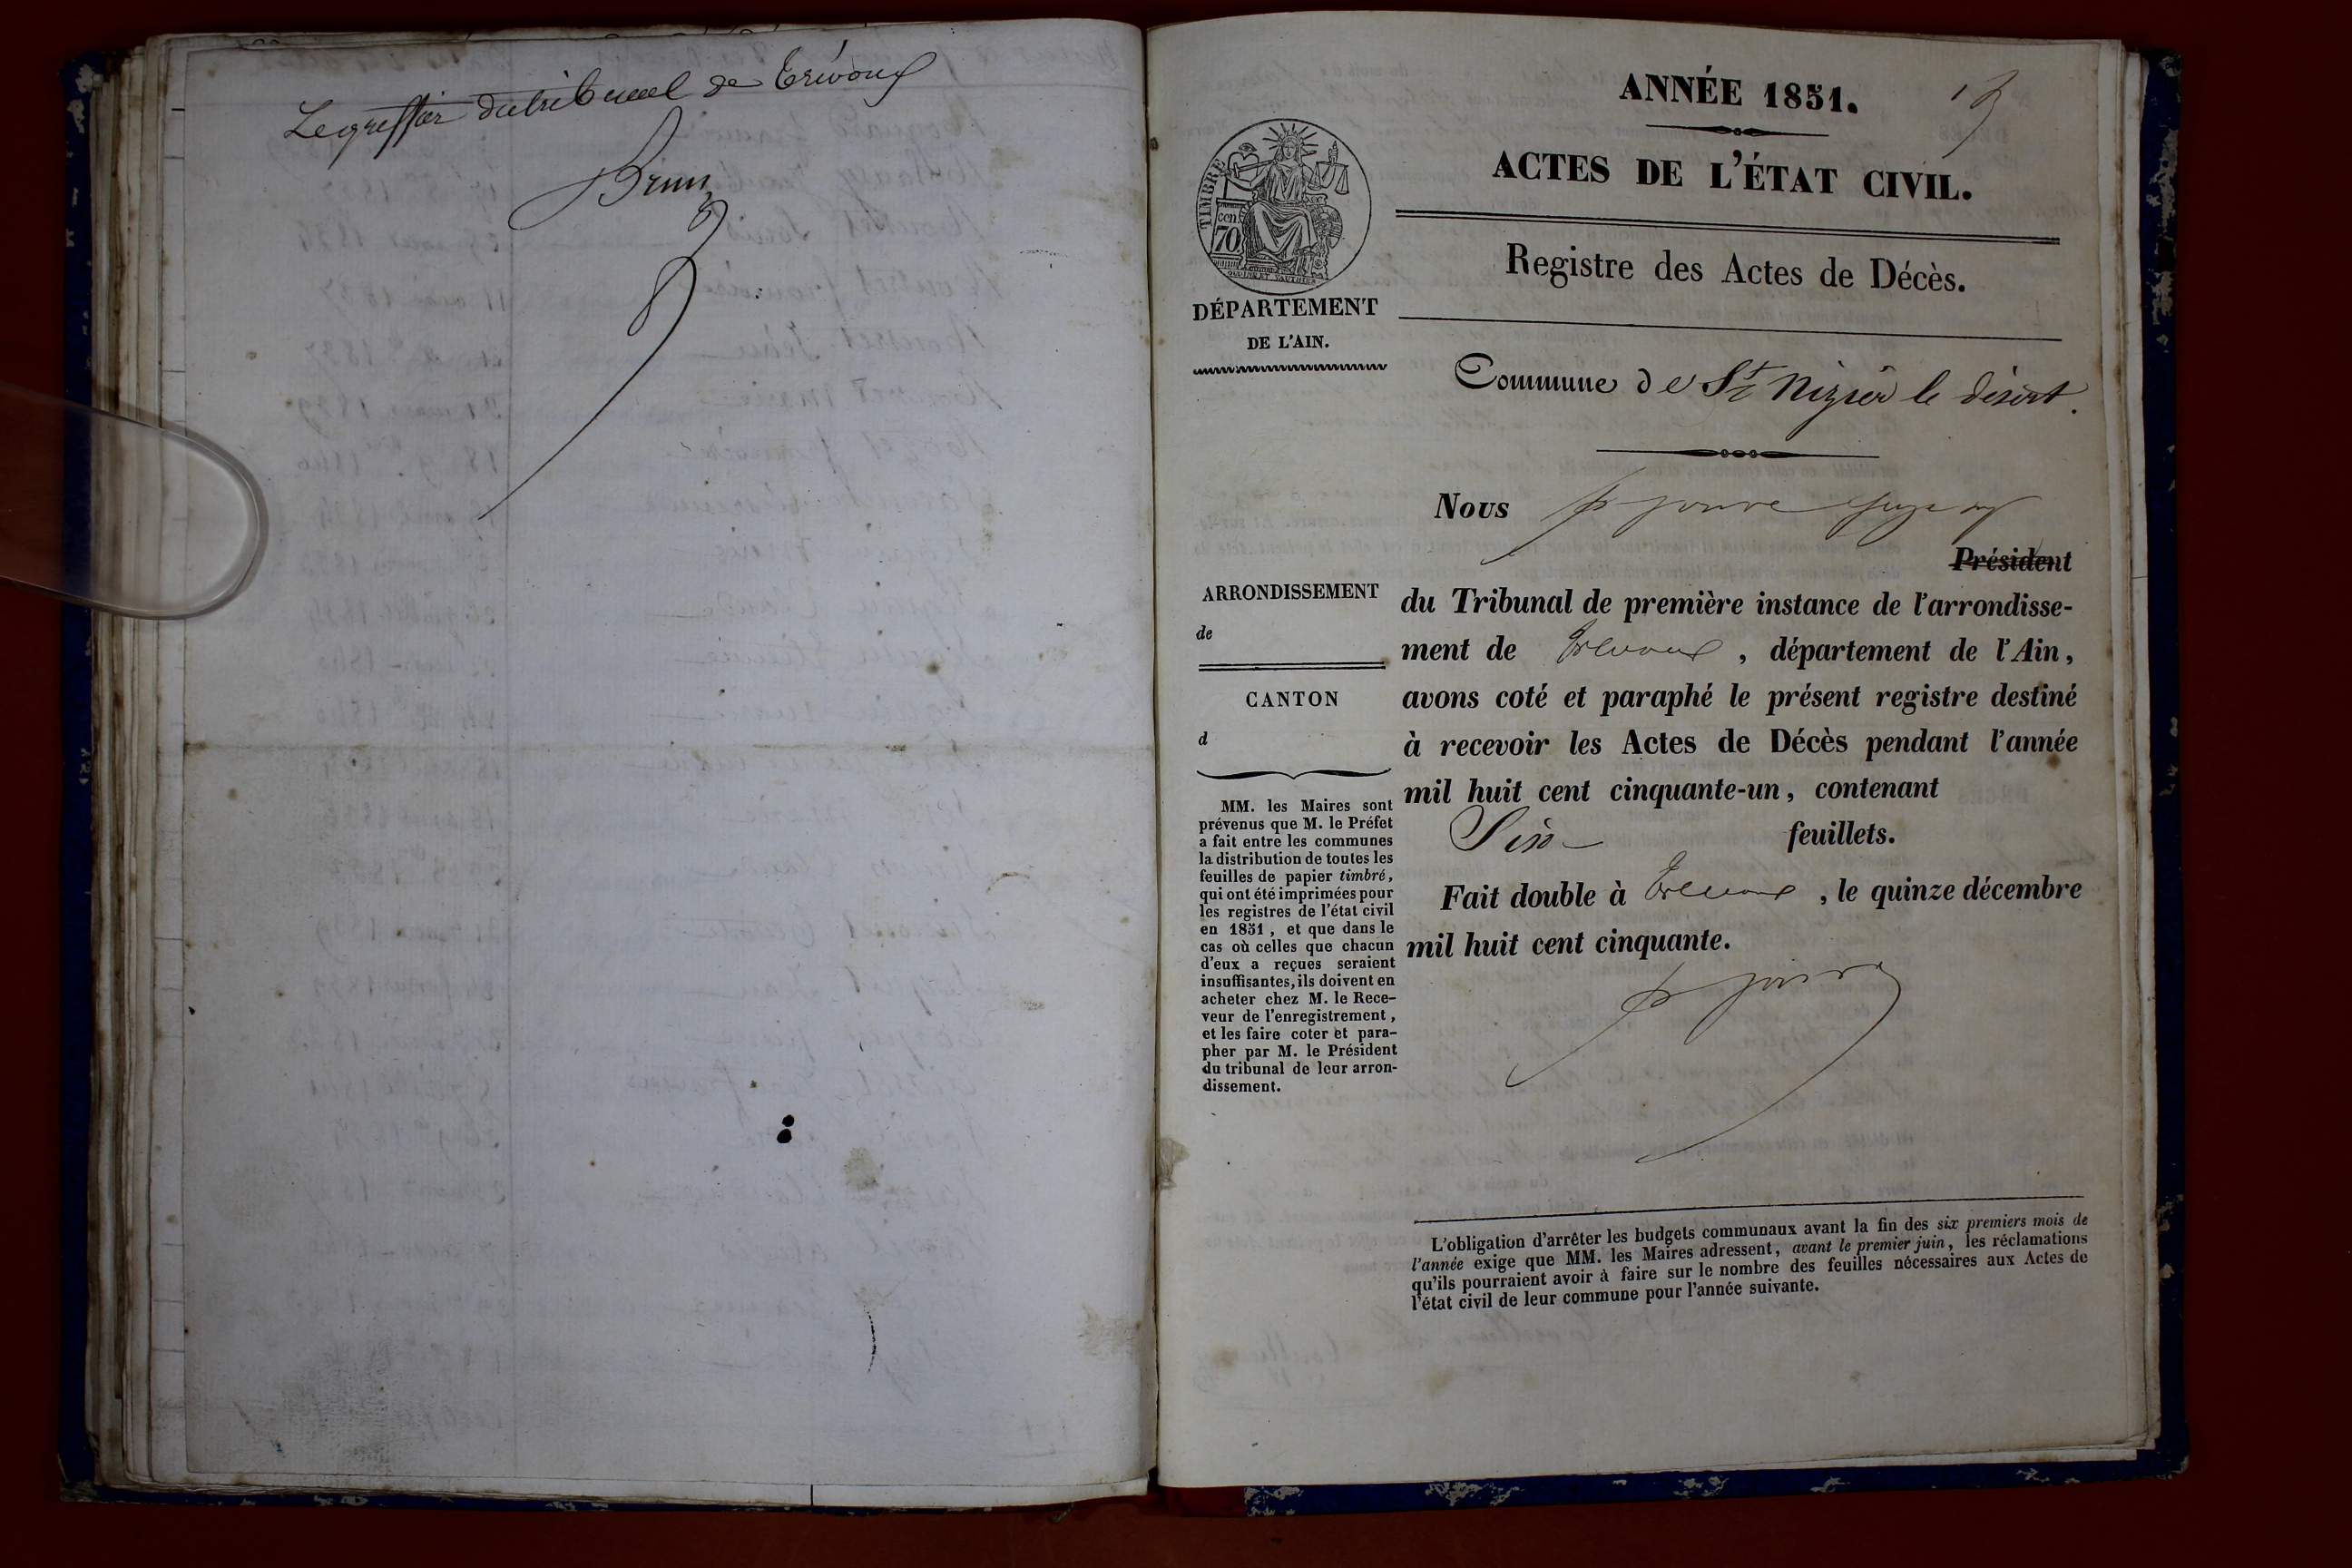 Le greffier du tribunal de Trévoux
Brun
ANNÉE 1851.
ACTES DE L'ÉTAT CIVIL.
Registre des Actes de Décès.
TIMBRE
cen.
70
DÉPARTEMENT
DE L'AIN.
Commune de St Nizier le désert.
Nous p jouve juge
Président
ARRONDISSEMENT
de
CANTON
d
du Tribunal de première instance de l'arrondisse-
ment de Trevoux, département de l'Ain,
avons coté et paraphé le présent registre destiné
à recevoir les Actes de Décès pendant l'année
mil huit cent cinquante-un, contenant
Six feuillets.
Fait double à Trevoux, le quinze décembre
mil huit cent cinquante.
p jouve
MM. les Maires sont
prévenus que M. le Préfet
a fait entre les communes
la distribution de toutes les
feuilles de papier timbré,
qui ont été imprimées pour
les registres de l'état civil
en 1851, et que dans le
cas où celles que chacun
d'eux a reçues seraient
insuffisantes, ils doivent en
acheter chez M. le Rece-
veur de l'enregistrement,
et les faire coter et para-
pher par M. le Président
du tribunal de leur arron-
dissement.
L'obligation d'arrêter les budgets communaux avant la fin des six premiers mois de
l'année exige que MM. les Maires adressent, avant le premier juin, les réclamations
qu'ils pourraient avoir à faire sur le nombre des feuilles nécessaires aux Actes de
l'état civil de leur commune pour l'année suivante.